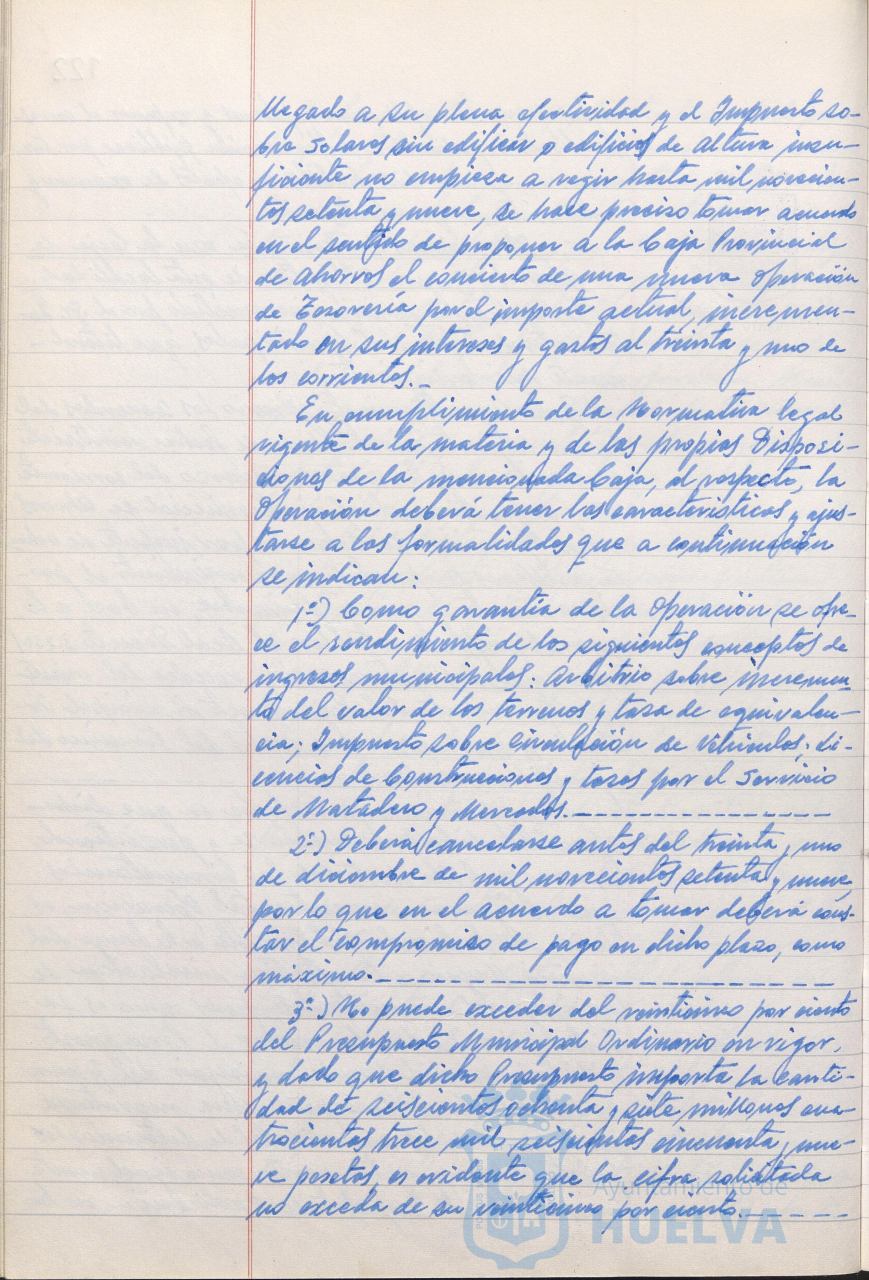 llegado a su plena efectividad y el Impuesto so-
bre Solares sin edificar o edificios de altura insu-
ficiente no empieza a regir hasta mil novecien-
tos setenta y nueve, se hace preciso tomar acuerdo
en el sentido de proponer a la Caja Provincial
de Ahorros el concierto de una nueva Operación
de Tesorería por el importe actual, incremen-
tado en sus intereses y gastos al treinta y uno de
los corrientes.-
En cumplimiento de la Normativa legal
vigente de la materia y de las propias Disposi-
ciones de la mencionada Caja, al respecto, la
Operación deberá tener las características y ajus-
tarse a las formalidades que a continuación
se indican:
1º-) Como garantía de la Operación se ofre-
ce el rendimiento de los siguientes conceptos de
ingresos municipales: Arbitrio sobre incremen-
to del valor de los terrenos y tasa de equivalen-
cia; Impuesto sobre Circulación de Vehículos; Li-
cencias de Construcciones y tasas por el Servicio
de Matadero y Mercados.---------------
2º-) Deberá cancelarse antes del treinta y uno
de diciembre de mil novecientos setenta y nueve,
por lo que en el acuerdo a tomar deberá cons-
tar el compromiso de pago en dicho plazo, como
máximo.-------------------------
3º-) No puede exceder del veinticinco por ciento
del Presupuesto Municipal Ordinario en vigor,
y dado que dicho Presupuesto importa la canti-
dad de seiscientos ochenta y siete millones cua-
trocientos trece mil seiscientos cincuenta y nue-
ve pesetas, es evidente que la cifra solicitada
no exceda de su veinticinco por ciento.------
Ayuntamiento de
HUELVA